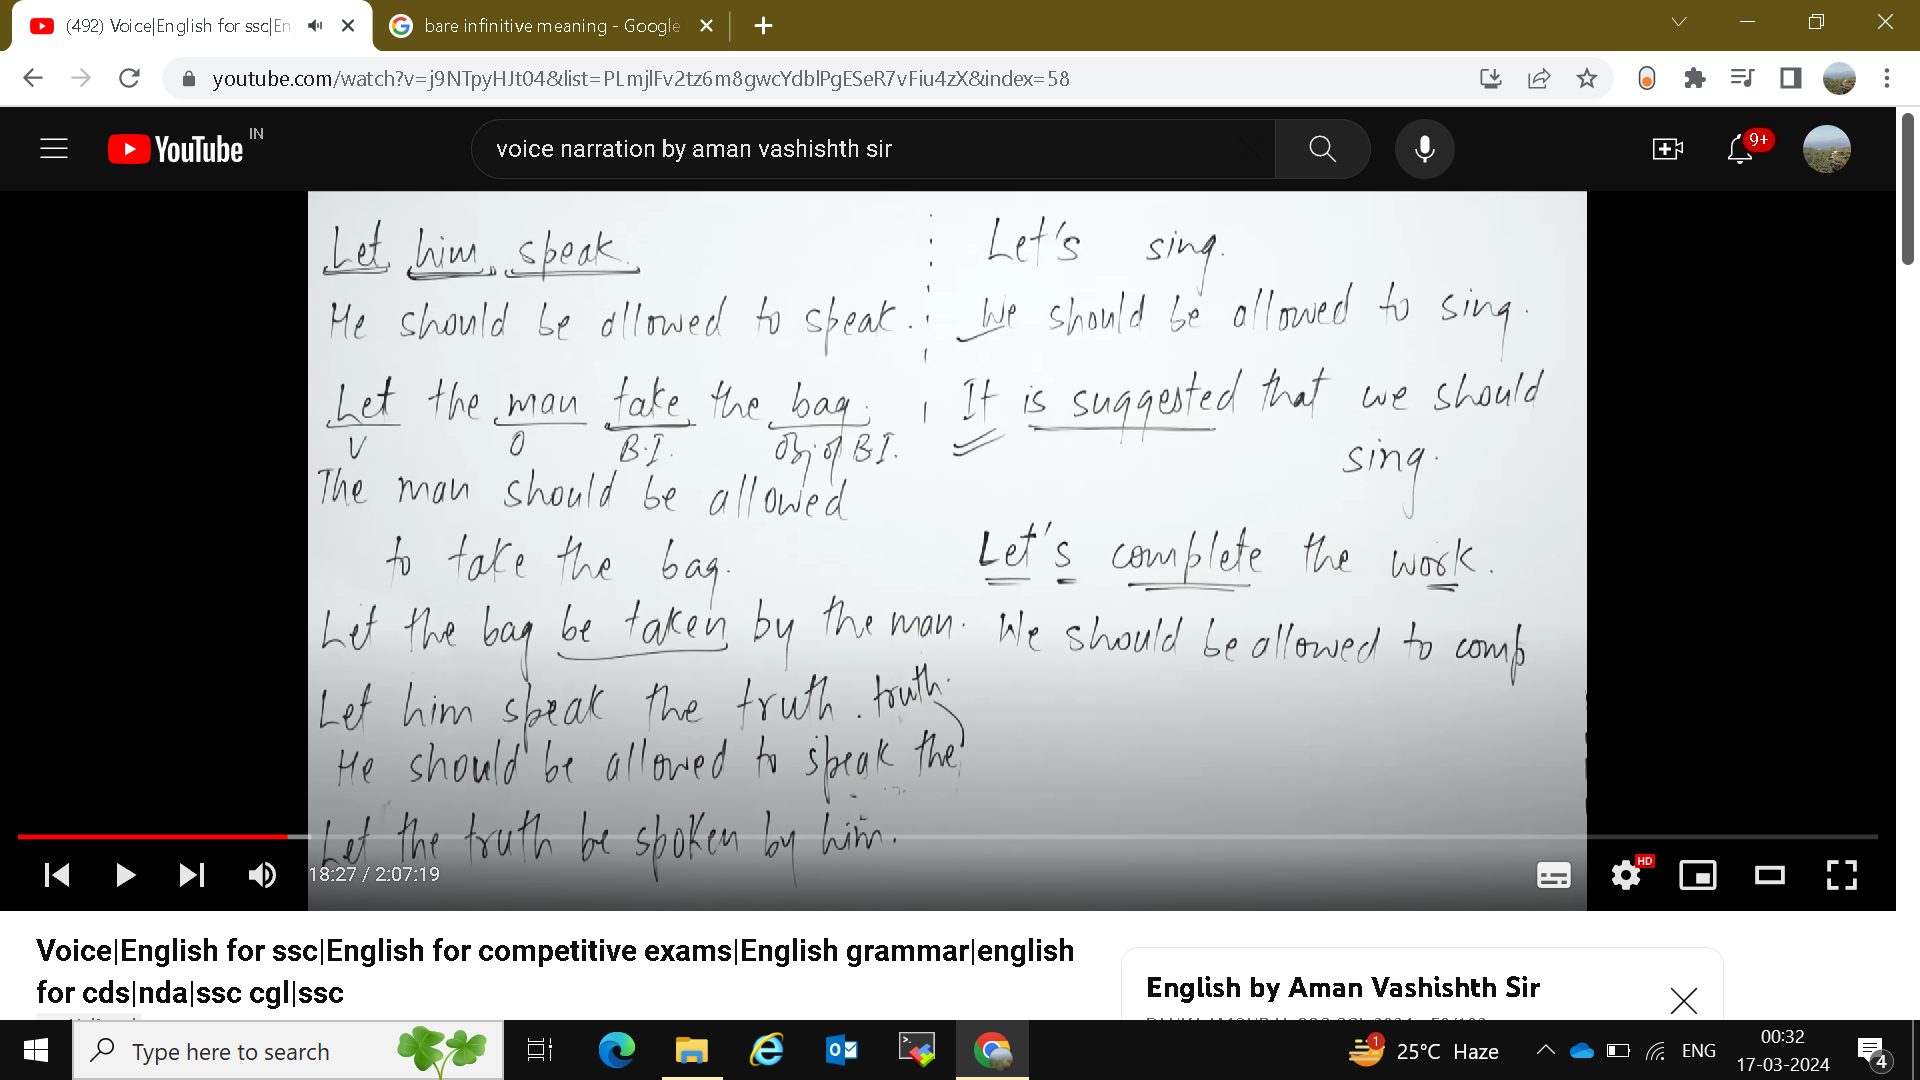 (492) Voice|English for ssc|En
bare infinitive meaning - Google
youtube.com/watch?v=j9NTpyHJt04&list=PLmjlFv2tz6m8gwcYdblPgESeR7vFiu4zX&index=58
YouTube IN
voice narration by aman vashishth sir
9+
Let him speak.
He should be allowed to speak.
Let the man take the bag.
V O B.I. Obj of B.I.
The man should be allowed
to take the bag.
Let the bag be taken by the man.
Let him speak the truth. truth.
He should be allowed to speak the
Let the truth be spoken by him.
Let's sing.
We should be allowed to sing.
It is suggested that we should
sing.
Let's complete the work.
We should be allowed to comp
18:27 / 2:07:19
HD
Voice|English for ssc|English for competitive exams|English grammar|english
for cds|nda|ssc cgl|ssc
English by Aman Vashishth Sir
Type here to search
1
25°C Haze
ENG
00:32
17-03-2024
4